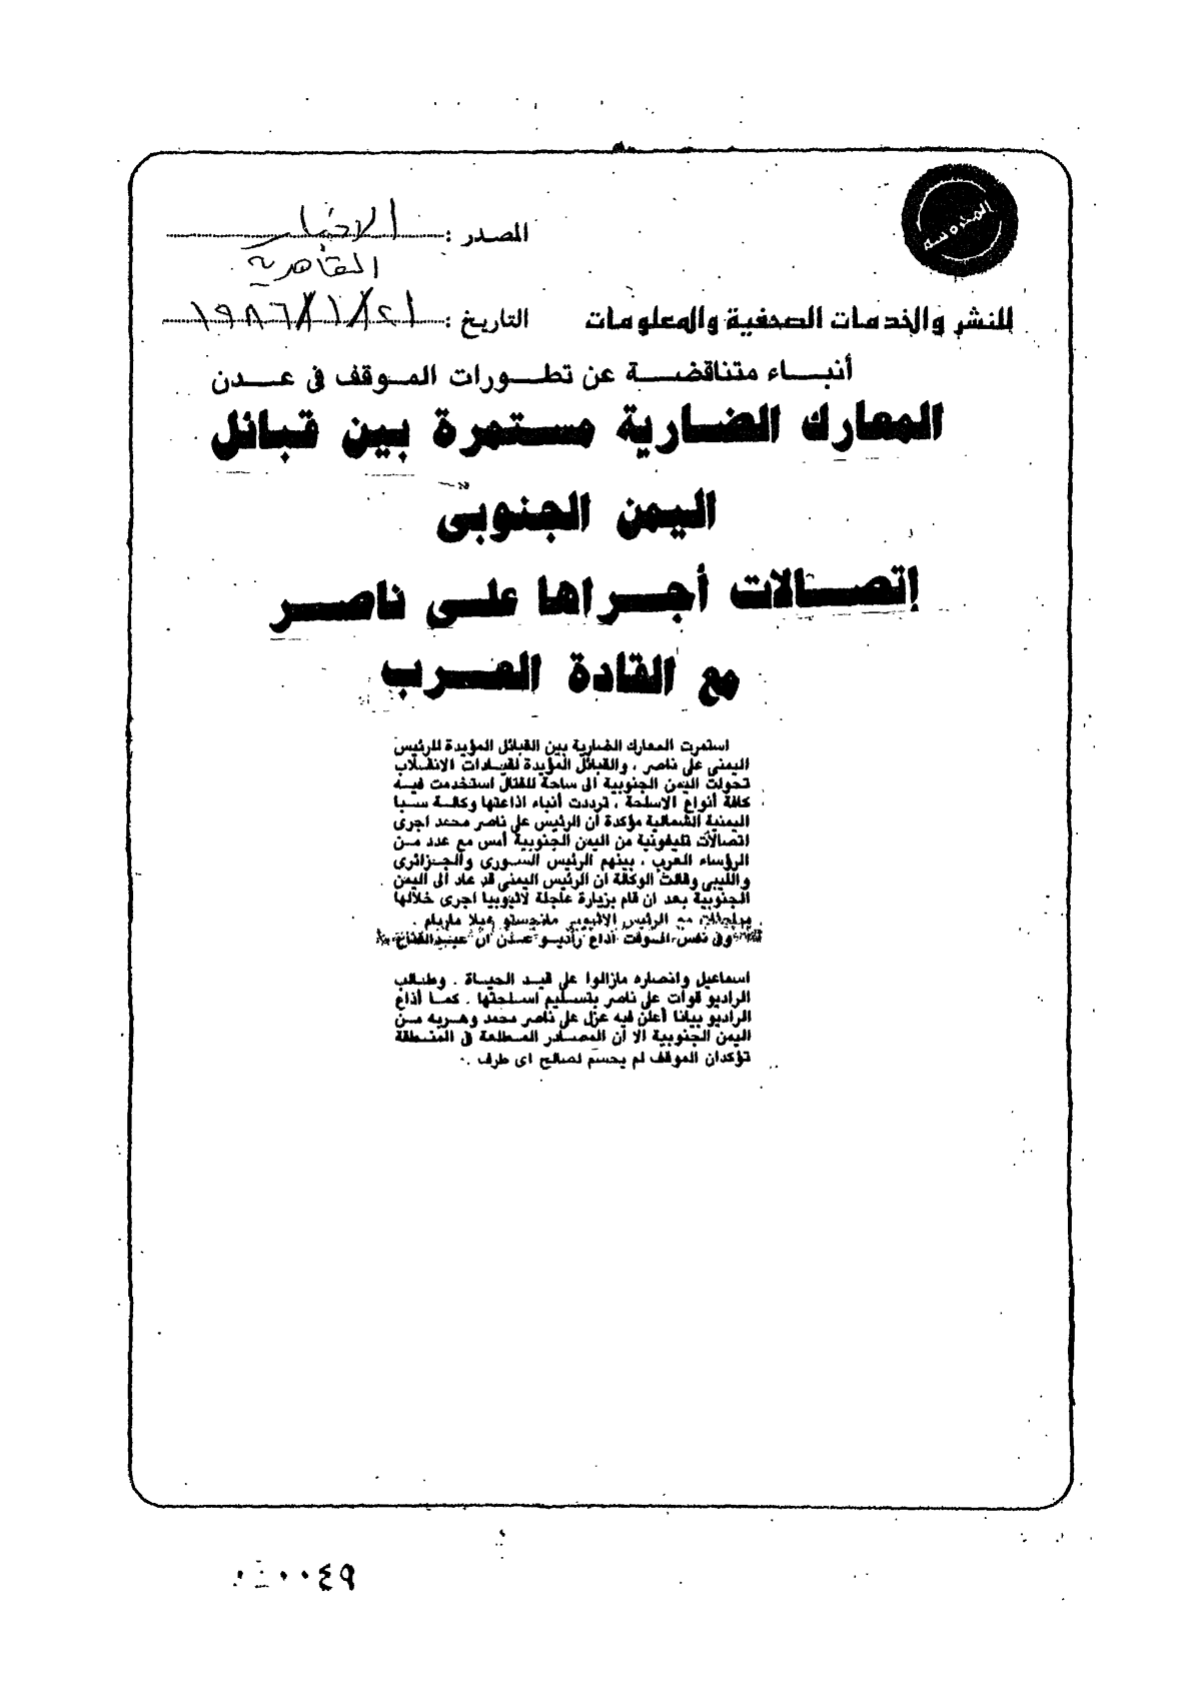 المحروسة
المصدر : الاخبار
القاهرية
للنشر والخدمات الصحفية والمعلومات
التاريخ : ٢١/١/١٩٨٦
أنباء متناقضة عن تطورات الموقف فى عدن
المعارك الضارية مستمرة بين قبائل
اليمن الجنوبى
إتصالات أجراها على ناصر
مع القادة العرب
استمرت المعارك الضارية بين القبائل المؤيدة للرئيس
اليمنى على ناصر ، والقبائل المؤيدة لقيادات الانقلاب
تحولت اليمن الجنوبية الى ساحة للقتال استخدمت فيه
كافة أنواع الاسلحة ، ترددت أنباء اذاعتها وكالة سبا
اليمنية الشمالية مؤكدة ان الرئيس على ناصر محمد اجرى
اتصالات تليفونية من اليمن الجنوبية أمس مع عدد من
الرؤساء العرب ، بينهم الرئيس السورى والجزائرى
والليبى وقالت الوكالة ان الرئيس اليمنى قد عاد الى اليمن
الجنوبية بعد ان قام بزيارة عاجلة لاثيوبيا اجرى خلالها
مباحثات مع الرئيس الاثيوبى مانجستو هيلا ماريام .
وفى نفس الوقت اذاع راديو عدن ان عبدالفتاح
اسماعيل وانصاره مازالوا على قيد الحياة . وطالب
الراديو قوات على ناصر بتسليم اسلحتها . كما أذاع
الراديو بيانا أعلن فيه عزل على ناصر محمد وهربه من
اليمن الجنوبية الا ان المصادر المطلعة فى المنطقة
تؤكدان الموقف لم يحسم لصالح اى طرف .
٠٠٠٤٩